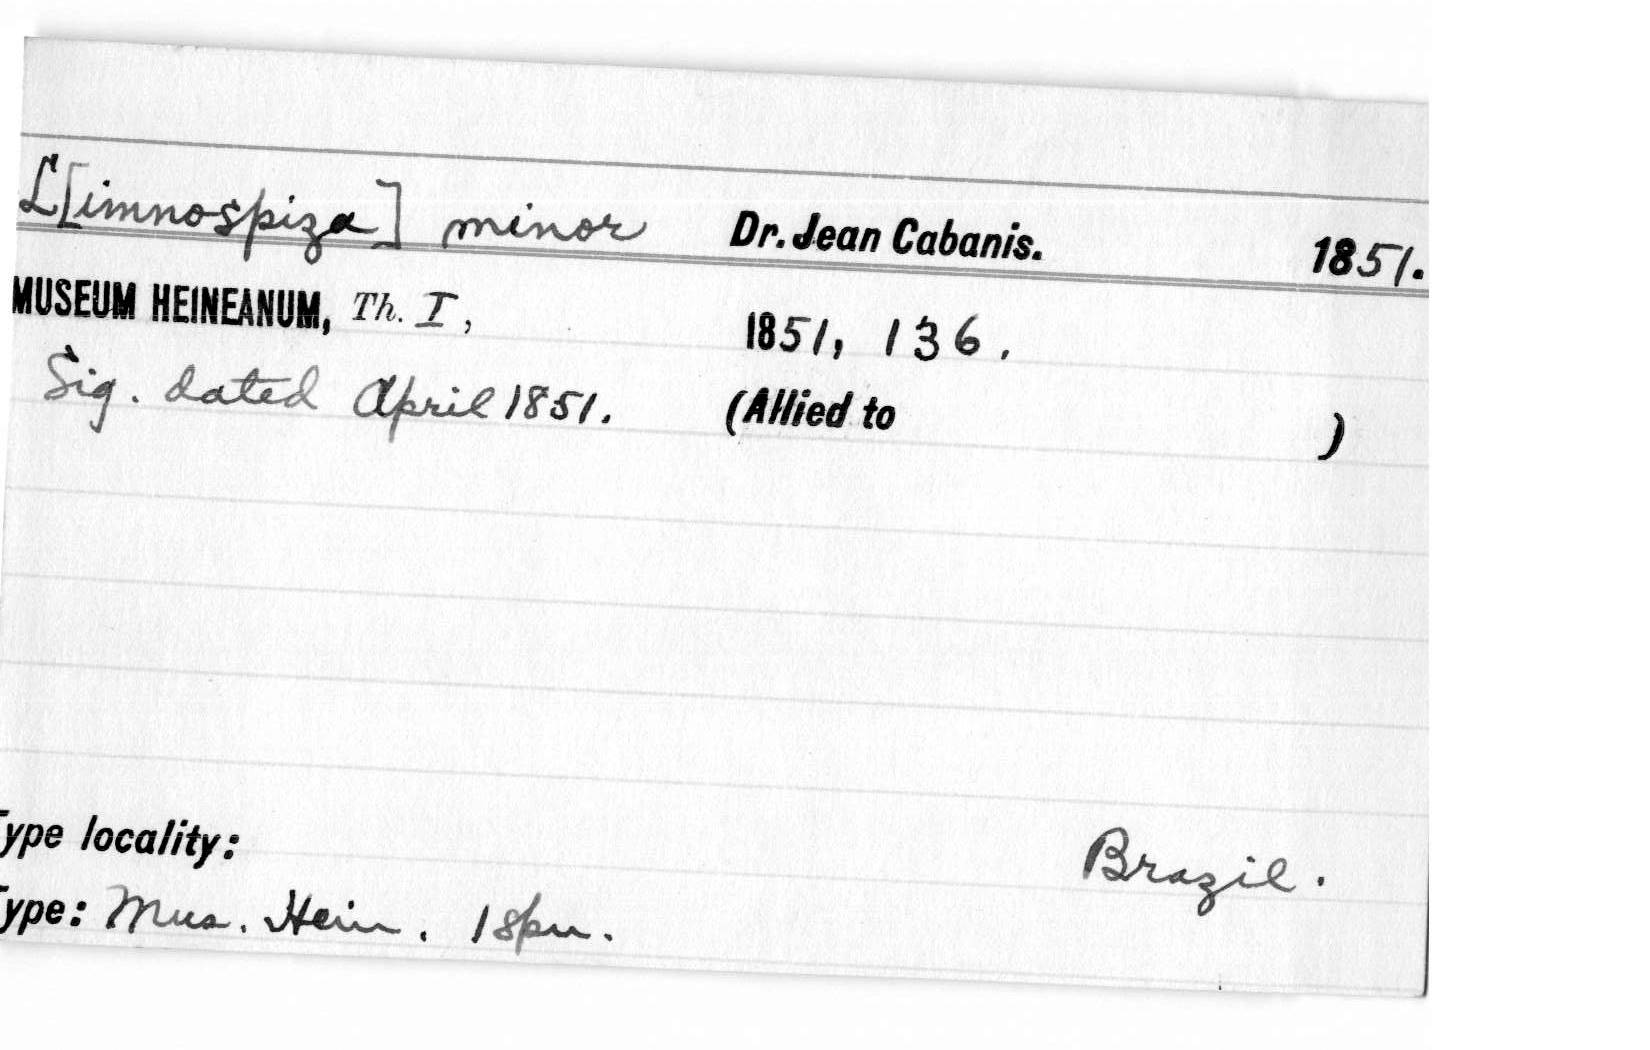 L[imnospiza] minor Dr. Jean Cabanis. 1851.
MUSEUM HEINEANUM, Th. I, 1851, 136.
Sig. dated April 1851. (Allied to )
Type locality: Brazil.
Type: Mus. Hein. 1 spn.